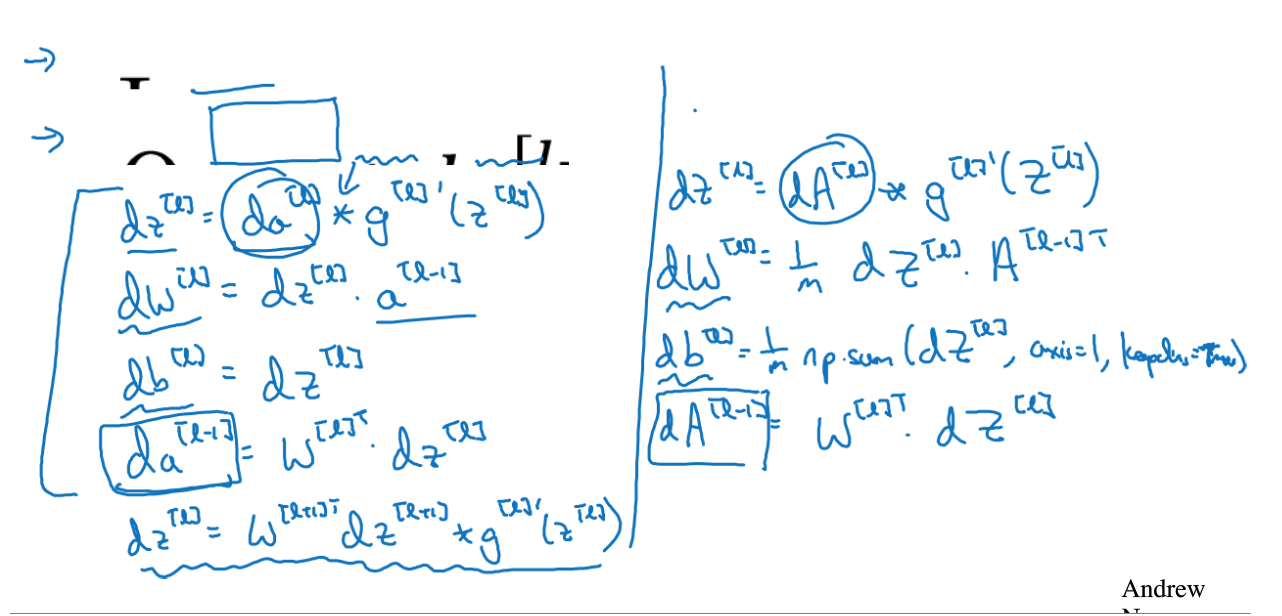 dz^[l] = da^[l] * g^[l]'(z^[l])
dw^[l] = dz^[l] . a^[l-1]
db^[l] = dz^[l]
da^[l-1] = w^[l]T . dz^[l]
dz^[l] = w^[l+1]T dz^[l+1] * g^[l]'(z^[l])
dz^[l] = dA^[l] * g^[l]'(z^[l])
dW^[l] = 1/m dz^[l] . A^[l-1]T
db^[l] = 1/m np.sum(dz^[l], axis=1, keepdims=True)
dA^[l-1] = W^[l]T . dz^[l]
Andrew